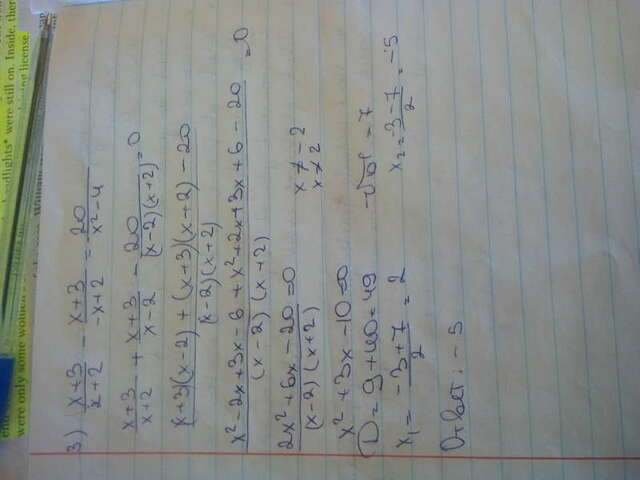 headlights* were still on. Inside, ther
were only some women's
license.
3) x+3/x+2 - x+3/-x+2 = 20/x²-4
x+3/x+2 + x+3/x-2 - 20/(x-2)(x+2) = 0
(x+3)(x-2) + (x+3)(x+2) - 20/(x-2)(x+2)
x²-2x+3x-6+x²+2x+3x+6-20/(x-2)(x+2) = 0
2x²+6x-20/(x-2)(x+2) = 0 x ≠ -2
x ≠ 2
x²+3x-10=0
D = 9+40=49 √D = 7
x₁ = -3+7/2 = 2 x₂ = -3-7/2 = -5
Ответ: -5